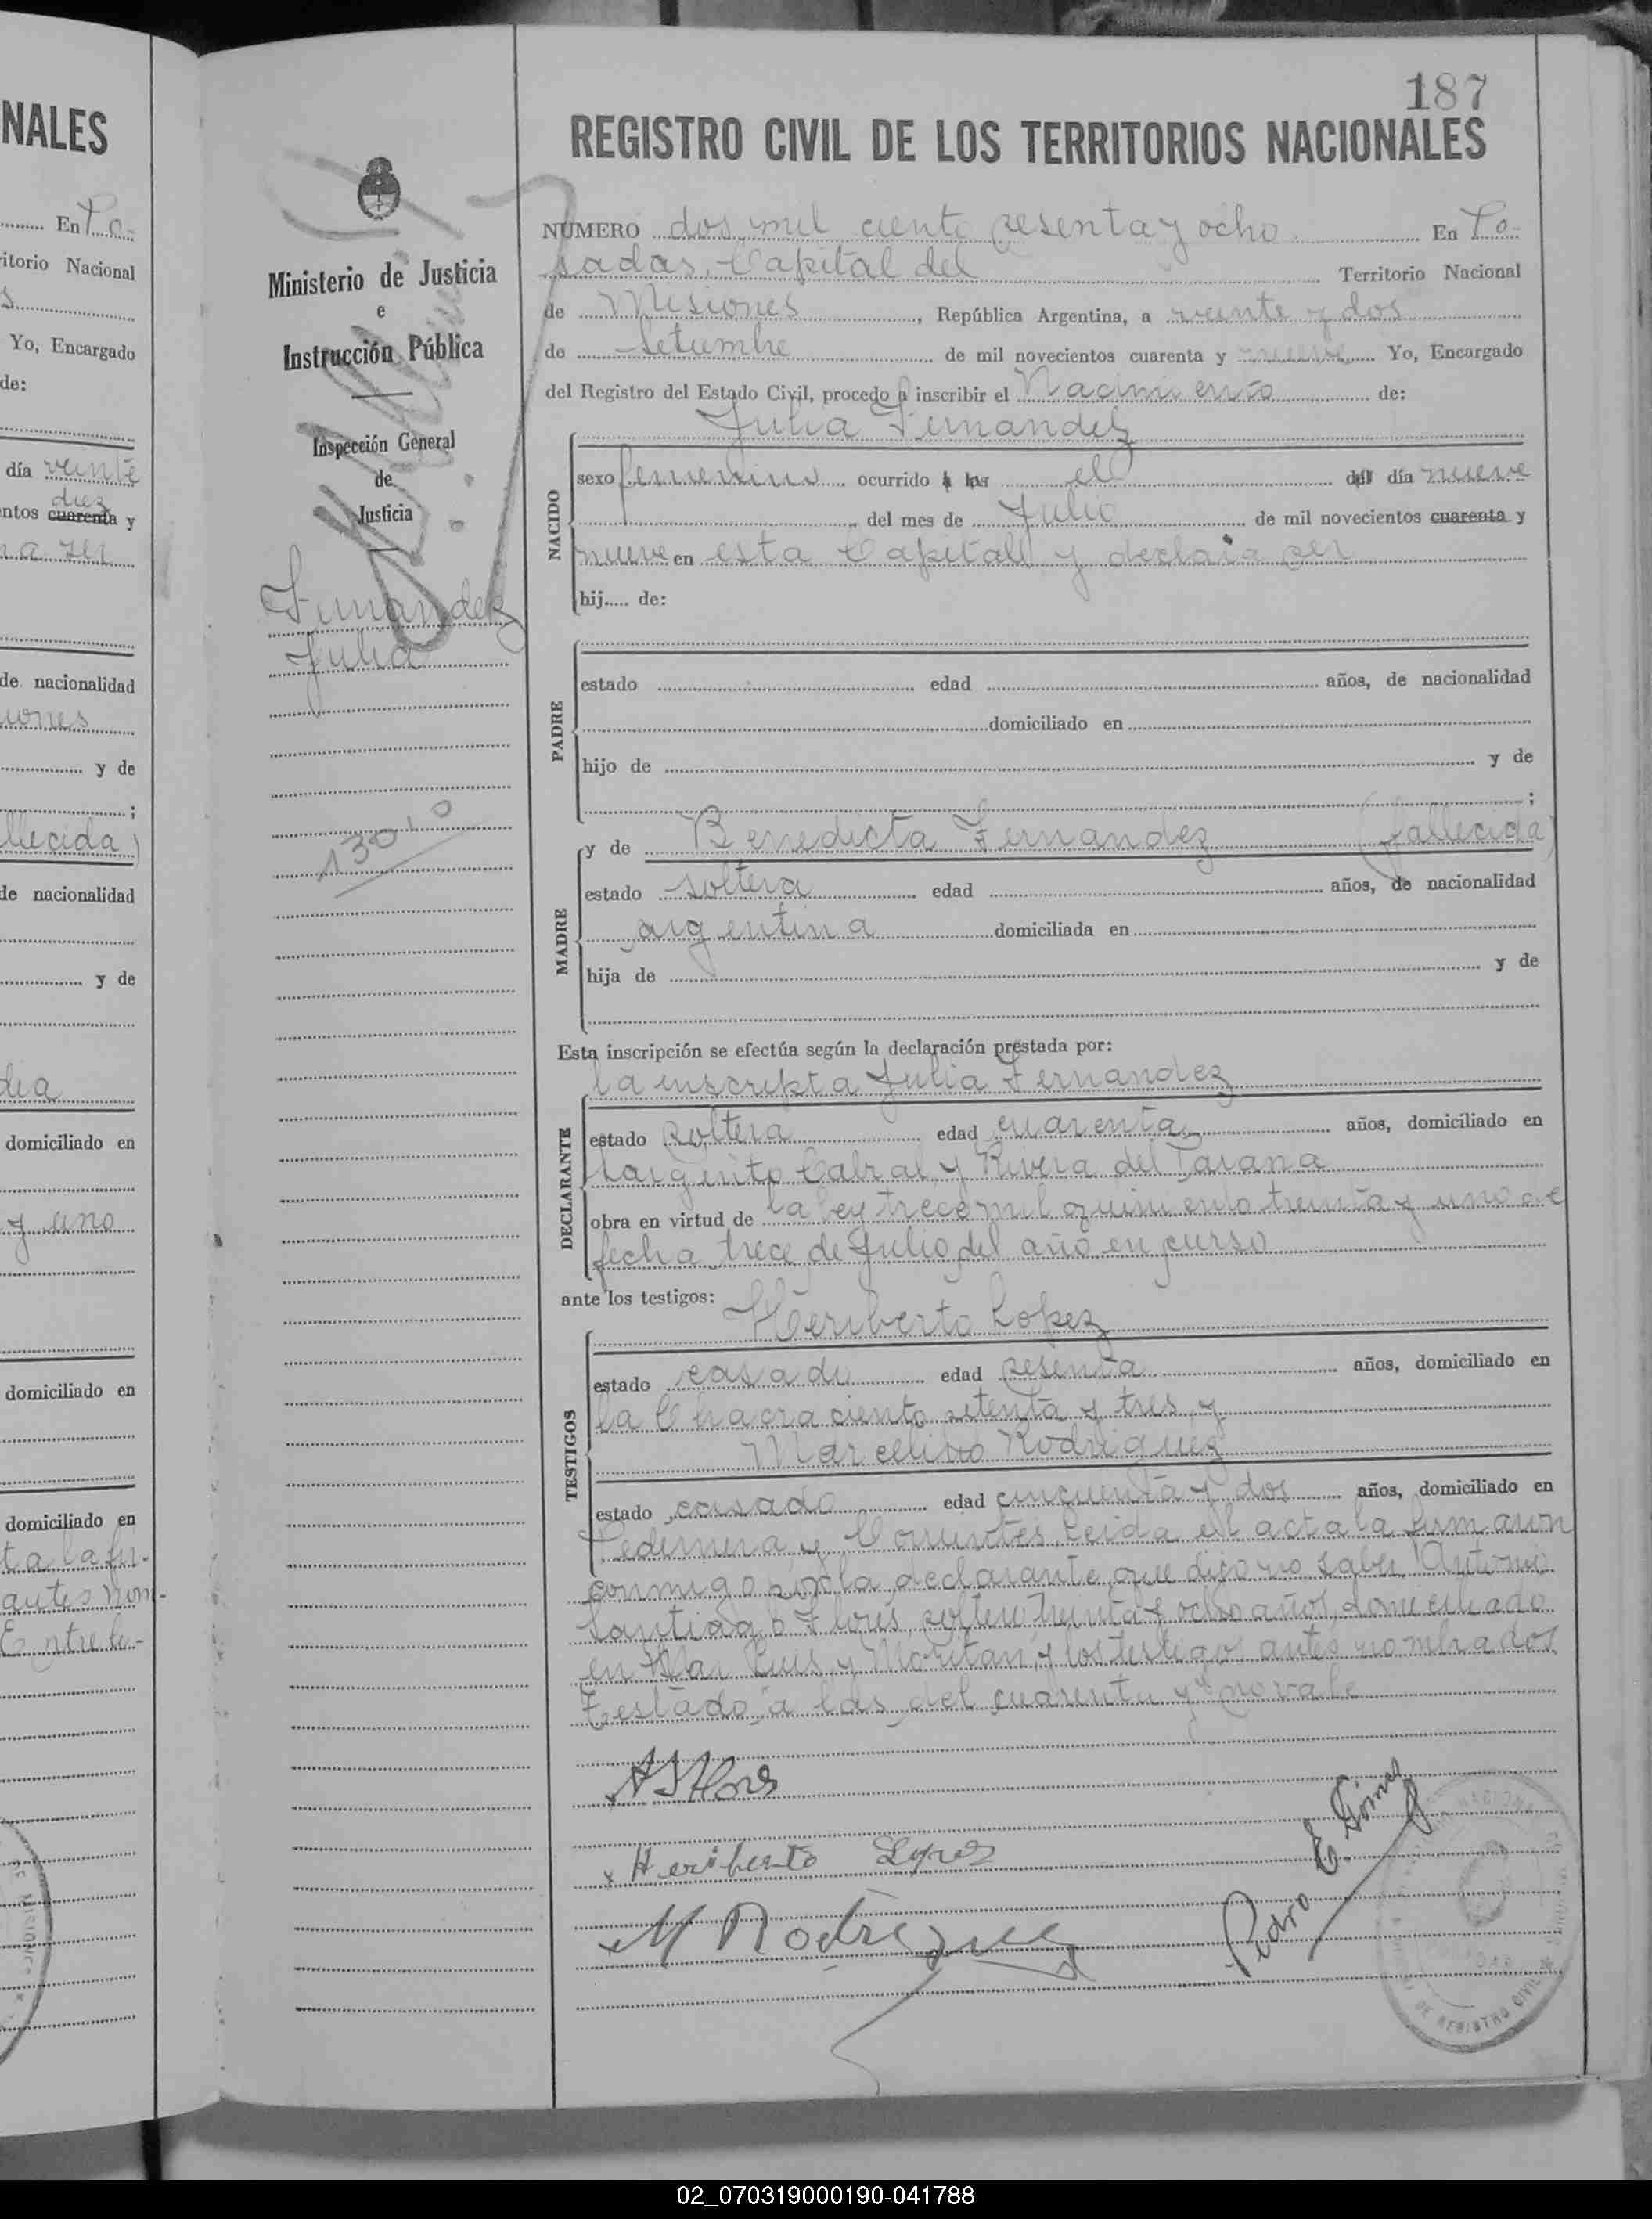 NALES
En Po-
itorio Nacional
s
Yo, Encargado
de:
día veinte
diez
ntos cuarenta y
a ser
de nacionalidad
iones
y de
;
llecida)
de nacionalidad
y de
dia
domiciliado en
y uno
domiciliado en
domiciliado en
ta la fir-
antes nom-
Entre lí-
Ministerio de Justicia
e
Instrucción Pública
Inspección General
de
Justicia
Fernandez
Julia
187
REGISTRO CIVIL DE LOS TERRITORIOS NACIONALES
NUMERO dos mil ciento sesenta y ocho En Po-
sadas, Capital del Territorio Nacional
de Misiones, República Argentina, a veinte y dos
de Setiembre de mil novecientos cuarenta y nueve Yo, Encargado
del Registro del Estado Civil, procedo a inscribir el Nacimiento de:
Julia Fernandez
NACIDO
sexo femenino ocurrido a las el del día nueve
del mes de Julio de mil novecientos cuarenta y
nueve en esta Capital y declara ser
hij..... de:
PADRE
estado edad años, de nacionalidad
domiciliado en
hijo de y de
;
MADRE
y de Benedicta Fernandez (fallecida)
estado soltera edad años, de nacionalidad
argentina domiciliada en
hija de y de
Esta inscripción se efectúa según la declaración prestada por:
la inscripta Julia Fernandez
DECLARANTE
estado soltera edad cuarenta años, domiciliado en
Sargento Cabral y Rivera del Parana
obra en virtud de la ley trece mil quiniento treinta y uno de
fecha trece de Julio del año en curso
ante los testigos:
Heriberto Lopez
TESTIGOS
estado casado edad sesenta años, domiciliado en
la Chacra ciento setenta y tres y
Marcelino Rodriguez
estado casado edad cincuenta y dos años, domiciliado en
Pedernera y Corrientes. Leida el acta la firmaron
conmigo por la declarante que dijo no saber Antonio
Santiago Flores, soltero treinta y ocho años, domiciliado
en San Luis y Moritan y los testigos antes nombrados
Testado "a las, del, cuarenta y" no vale
A S Flores
Heriberto Lopez
M Rodriguez
Pedro E.
DE REGISTRO CIVIL
02_070319000190-041788